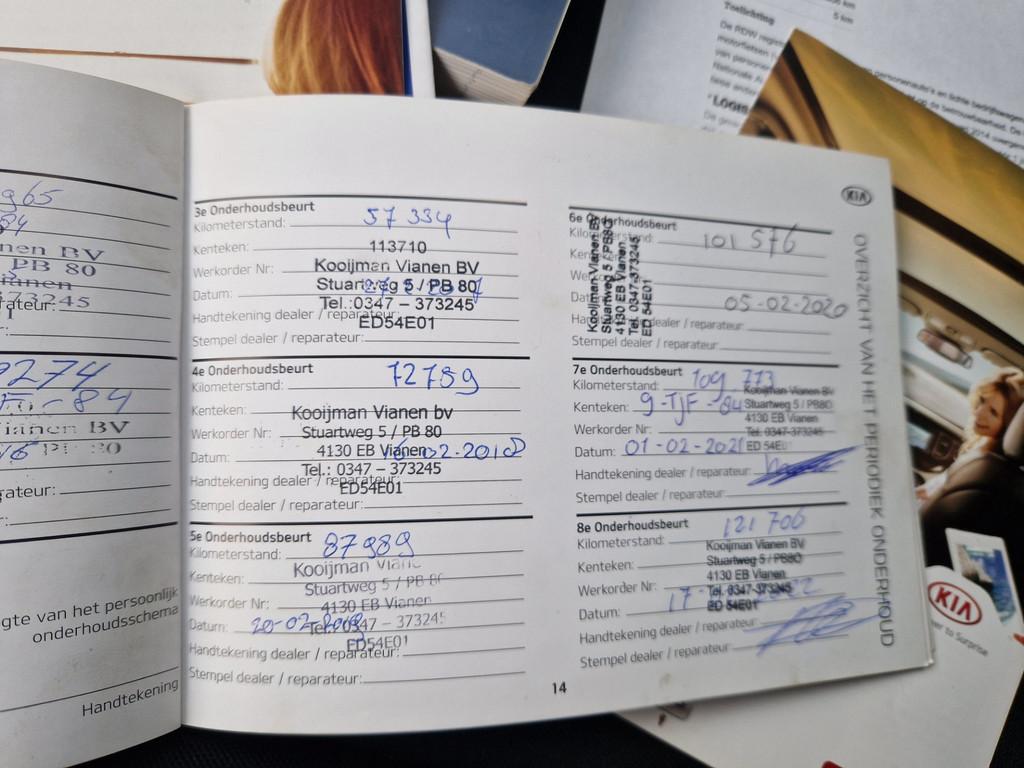 g65
84
nen BV
PB 80
ianen
73245
rateur:
274
84
ianen BV
rateur:
gte van het persoonlijk
onderhoudsschema
Handtekening
3e Onderhoudsbeurt
Kilometerstand: 57 334
Kenteken: 113710
Werkorder Nr: Kooijman Vianen BV
Stuartweg 5 / PB 80
Datum:
Tel.:0347 – 373245
Handtekening dealer / reparateur:
ED54E01
Stempel dealer / reparateur:
4e Onderhoudsbeurt
Kilometerstand: 72789
Kenteken: Kooijman Vianen bv
Werkorder Nr: Stuartweg 5 / PB 80
Datum: 4130 EB Vianen 02-2018
Tel.: 0347 – 373245
Handtekening dealer / reparateur:
ED54E01
Stempel dealer / reparateur:
5e Onderhoudsbeurt
Kilometerstand: 87989
Kooijman Vianen
Kenteken: Stuartweg 5 / PB 80
Werkorder Nr: 4130 EB Vianen
Datum: 20-02-2019 Tel.: 0347 – 373245
Handtekening dealer / reparateur:
ED54E01
Stempel dealer / reparateur:
14
6e Onderhoudsbeurt
Kilometerstand: 101 576
Kenteken:
Werkorder Nr:
Datum: 05-02-2020
Handtekening dealer / reparateur:
Stempel dealer / reparateur:
Kooijman Vianen BV
Stuartweg 5 / PB80
4130 EB Vianen
Tel. 0347-373245
ED 54E01
7e Onderhoudsbeurt
Kilometerstand: 109 773
Kooijman Vianen BV
Kenteken: 9-TJF-84 Stuartweg 5 / PB80
4130 EB Vianen
Werkorder Nr: Tel. 0347-373245
Datum: 01-02-2021 ED 54E
Handtekening dealer / reparateur:
Stempel dealer / reparateur:
8e Onderhoudsbeurt
Kilometerstand: 121 706
Kooijman Vianen BV
Kenteken: Stuartweg 5 / PB80
4130 EB Vianen
Werkorder Nr: Tel. 0347-373245
Datum: 17 ED 54E01
Handtekening dealer / reparateur:
Stempel dealer / reparateur:
KIA
OVERZICHT VAN HET PERIODIEK ONDERHOUD
5 km
Toelichting
De RDW
motorfietsen
van
personenauto's en lichte bedrijfswagen
KIA
er to Surprise